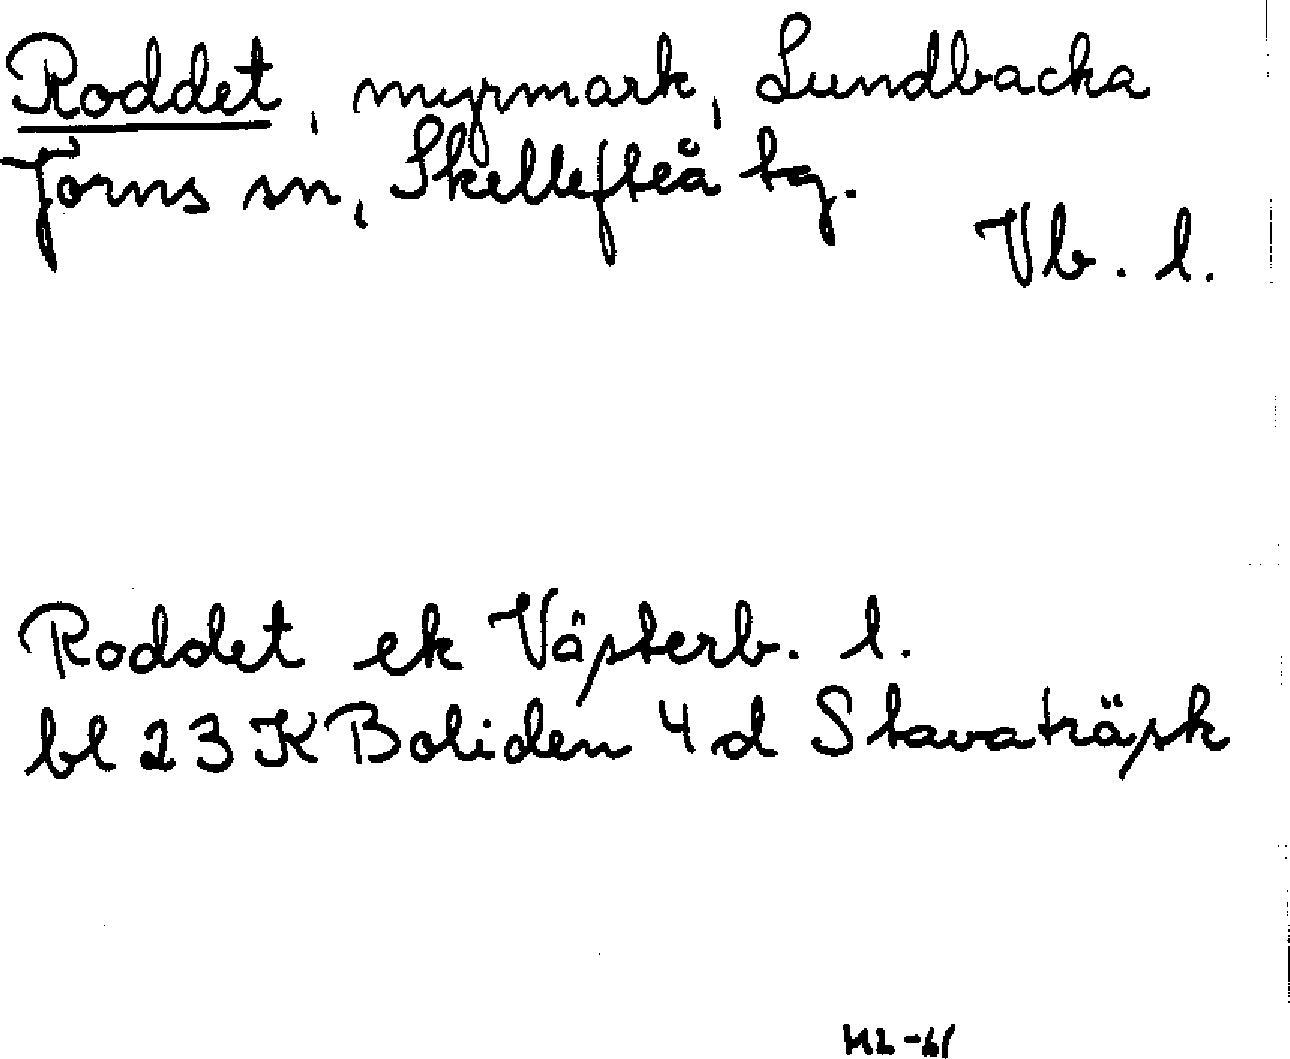 Roddet, myrmark, Lundbacka
Jörns sn, Skellefteå tg.
Vb. l.
Roddet ek Västerb. l.
bl 23 K Boliden 4 d Stavaträsk